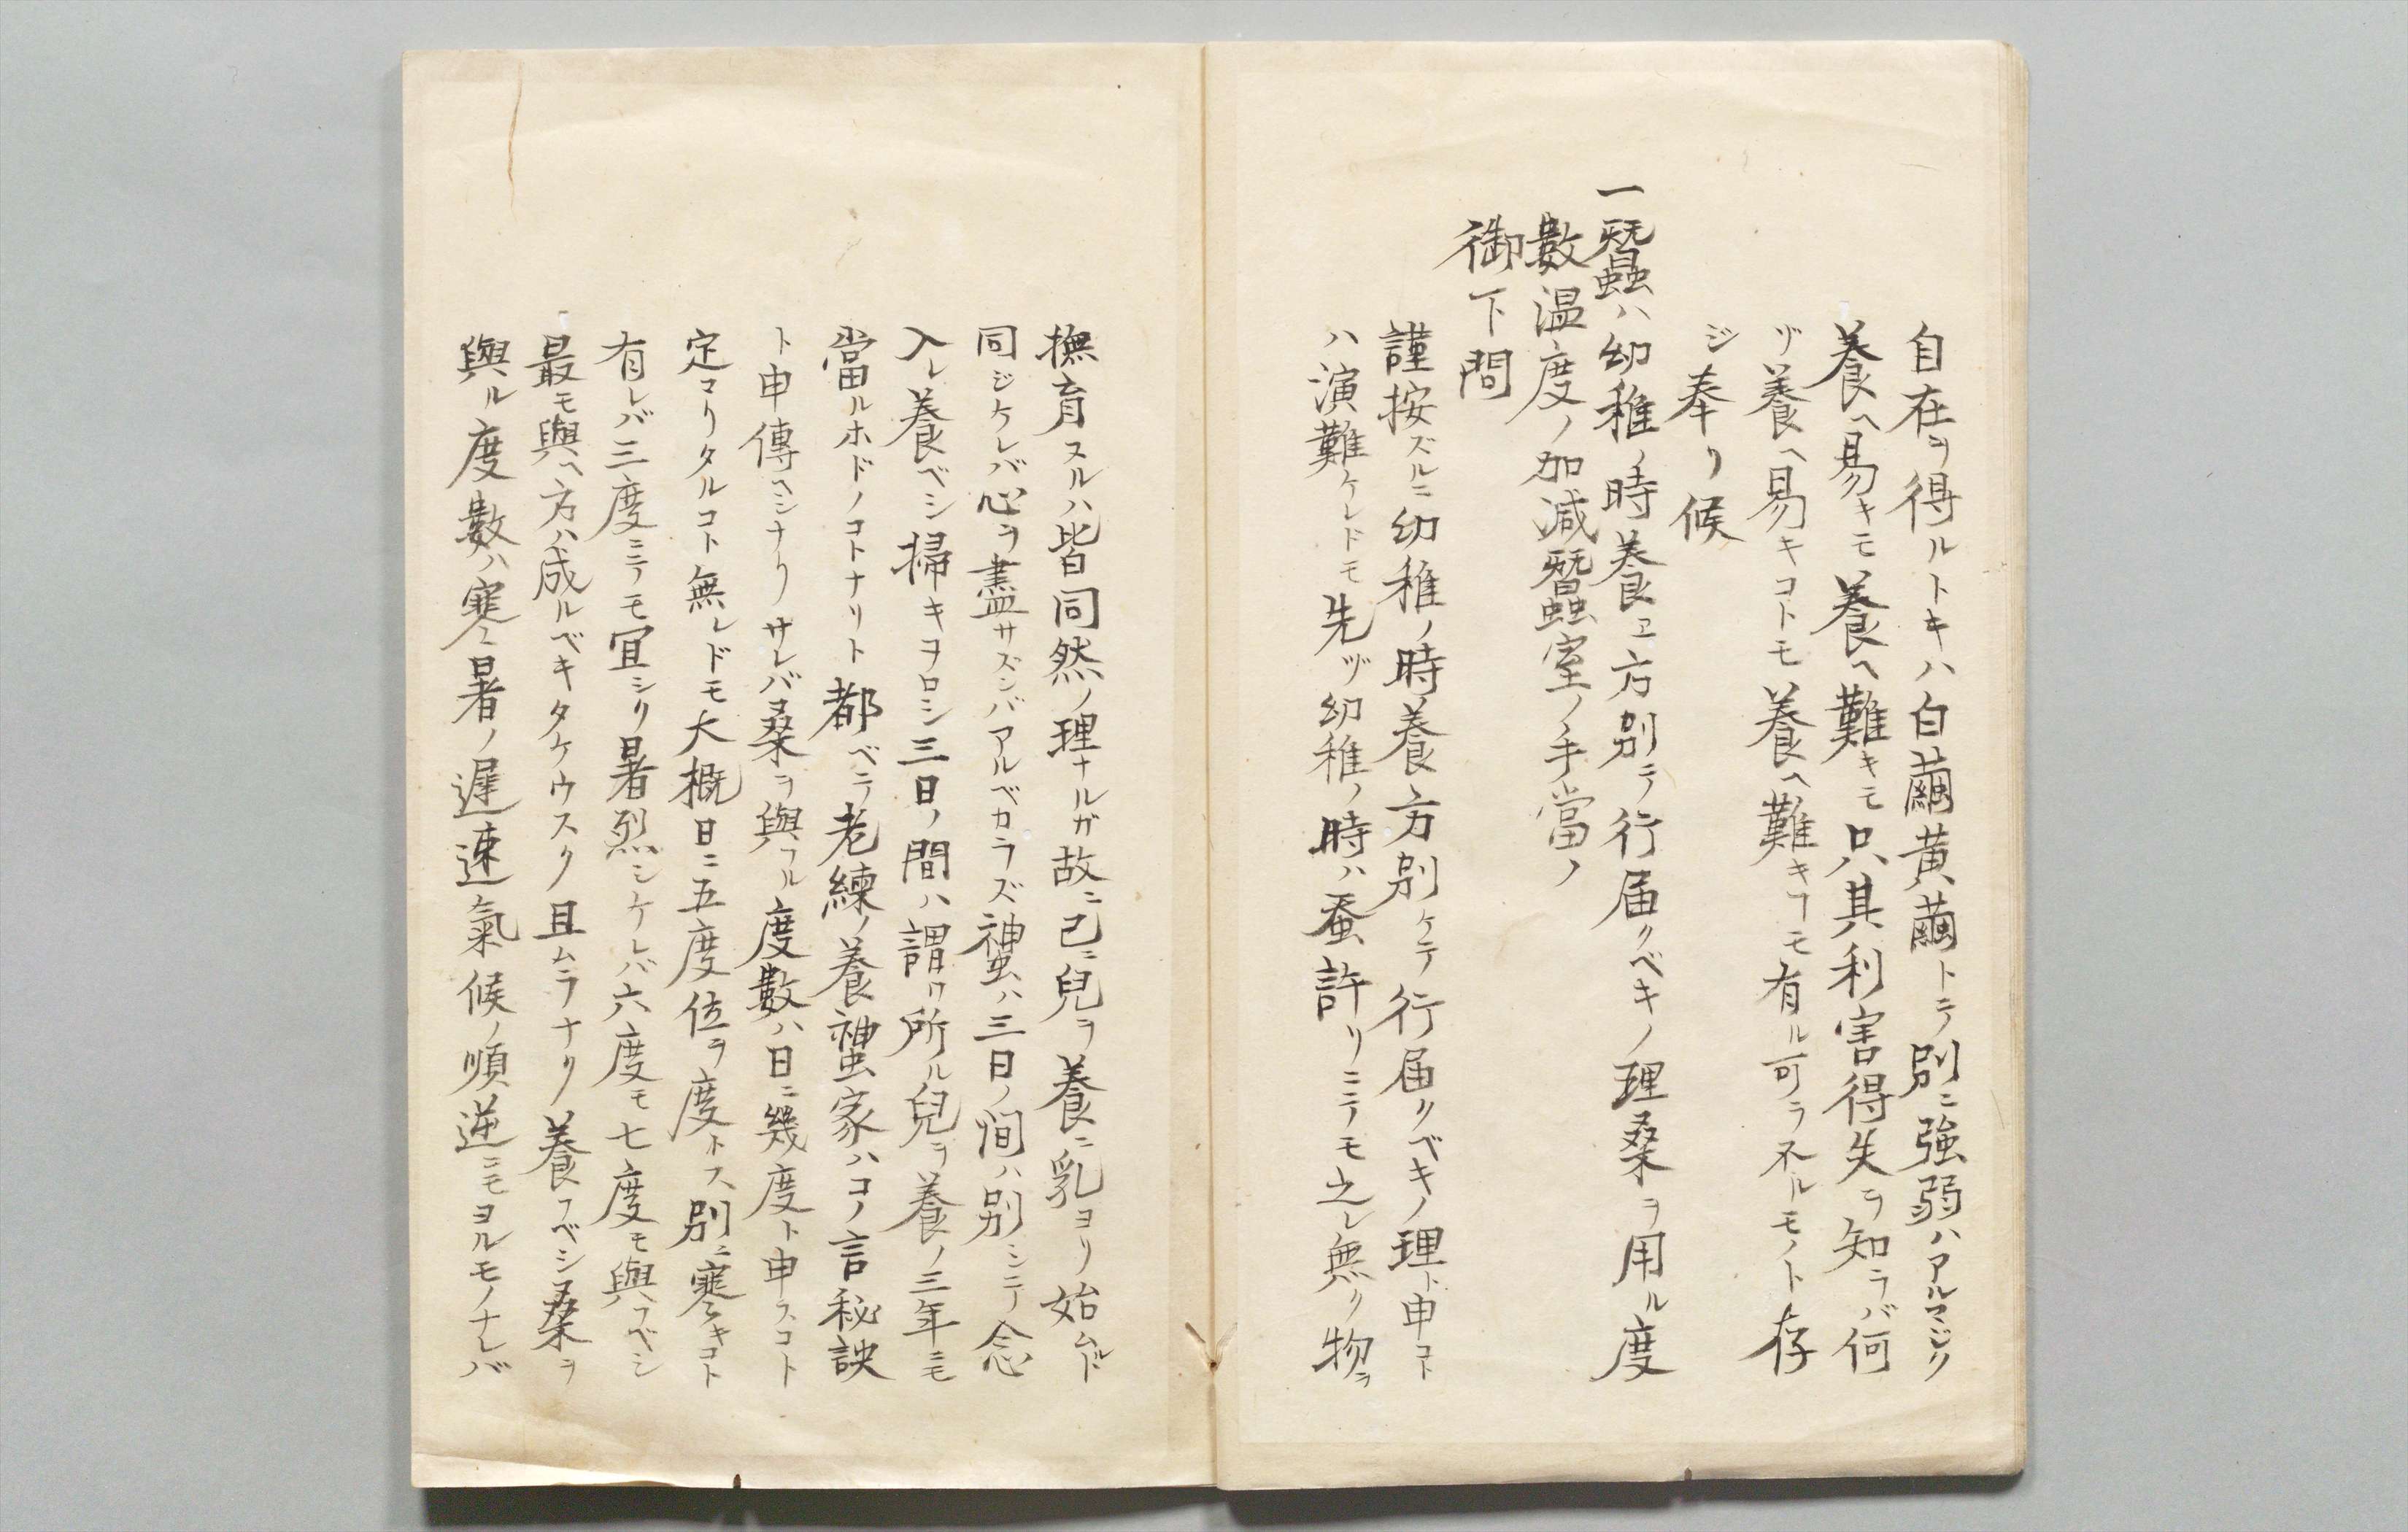 自在ヲ得ルトキハ白繭黄繭トテ別ニ強弱ハアルマジク
養ヘ易キモ養ヘ難キモ只其利害得失ヲ知ラバ何
ヅ養ヘ易キコトモ養ヘ難キヿモ有ル可ラ不ルモノト存
ジ奉リ候
一蠶ハ幼稚ノ時養ヱ方別テ行届クベキノ理桑ヲ用ル度
數温度ノ加减蠶室ノ手當ノ
御下問
謹按ズルニ幼稚ノ時養方別ケテ行届クベキノ理ト申コト
ハ演難ケレドモ先ヅ幼稚ノ時ハ蚕許リニテモ之レ無ク物ヲ
撫育スルハ皆同然ノ理ナルガ故ニ已ニ兒ヲ養ニ乳ヨリ始ムルト
同ジケレバ心ヲ盡サズンバアルベカラズ䘉ハ三日ノ間ハ別シニテ念
入レ養ベシ掃キヲロシ三日ノ間ハ謂ワ所ル兒ヲ養ノ三年ニモ
當ルホドノコトナリト都ベテ老練ノ養䘉家ハコノ言秘訣
ト申傳ヘシナリサレバ桑ヲ與フル度數ハ日ニ幾度ト申スコト
定マリタルコト無レドモ大概日ニ五度位ヲ度トス別ニ寒キコト
有レバ三度ニテモ冝シク暑烈シケレバ六度モ七度モ與フベシ
最モ與ヘ方ハ成ルベキタケウスク且ムラナク養フベシ桑ヲ
與ル度數ハ寒暑ノ遲速氣候ノ順逆ニモヨルモノナレバ